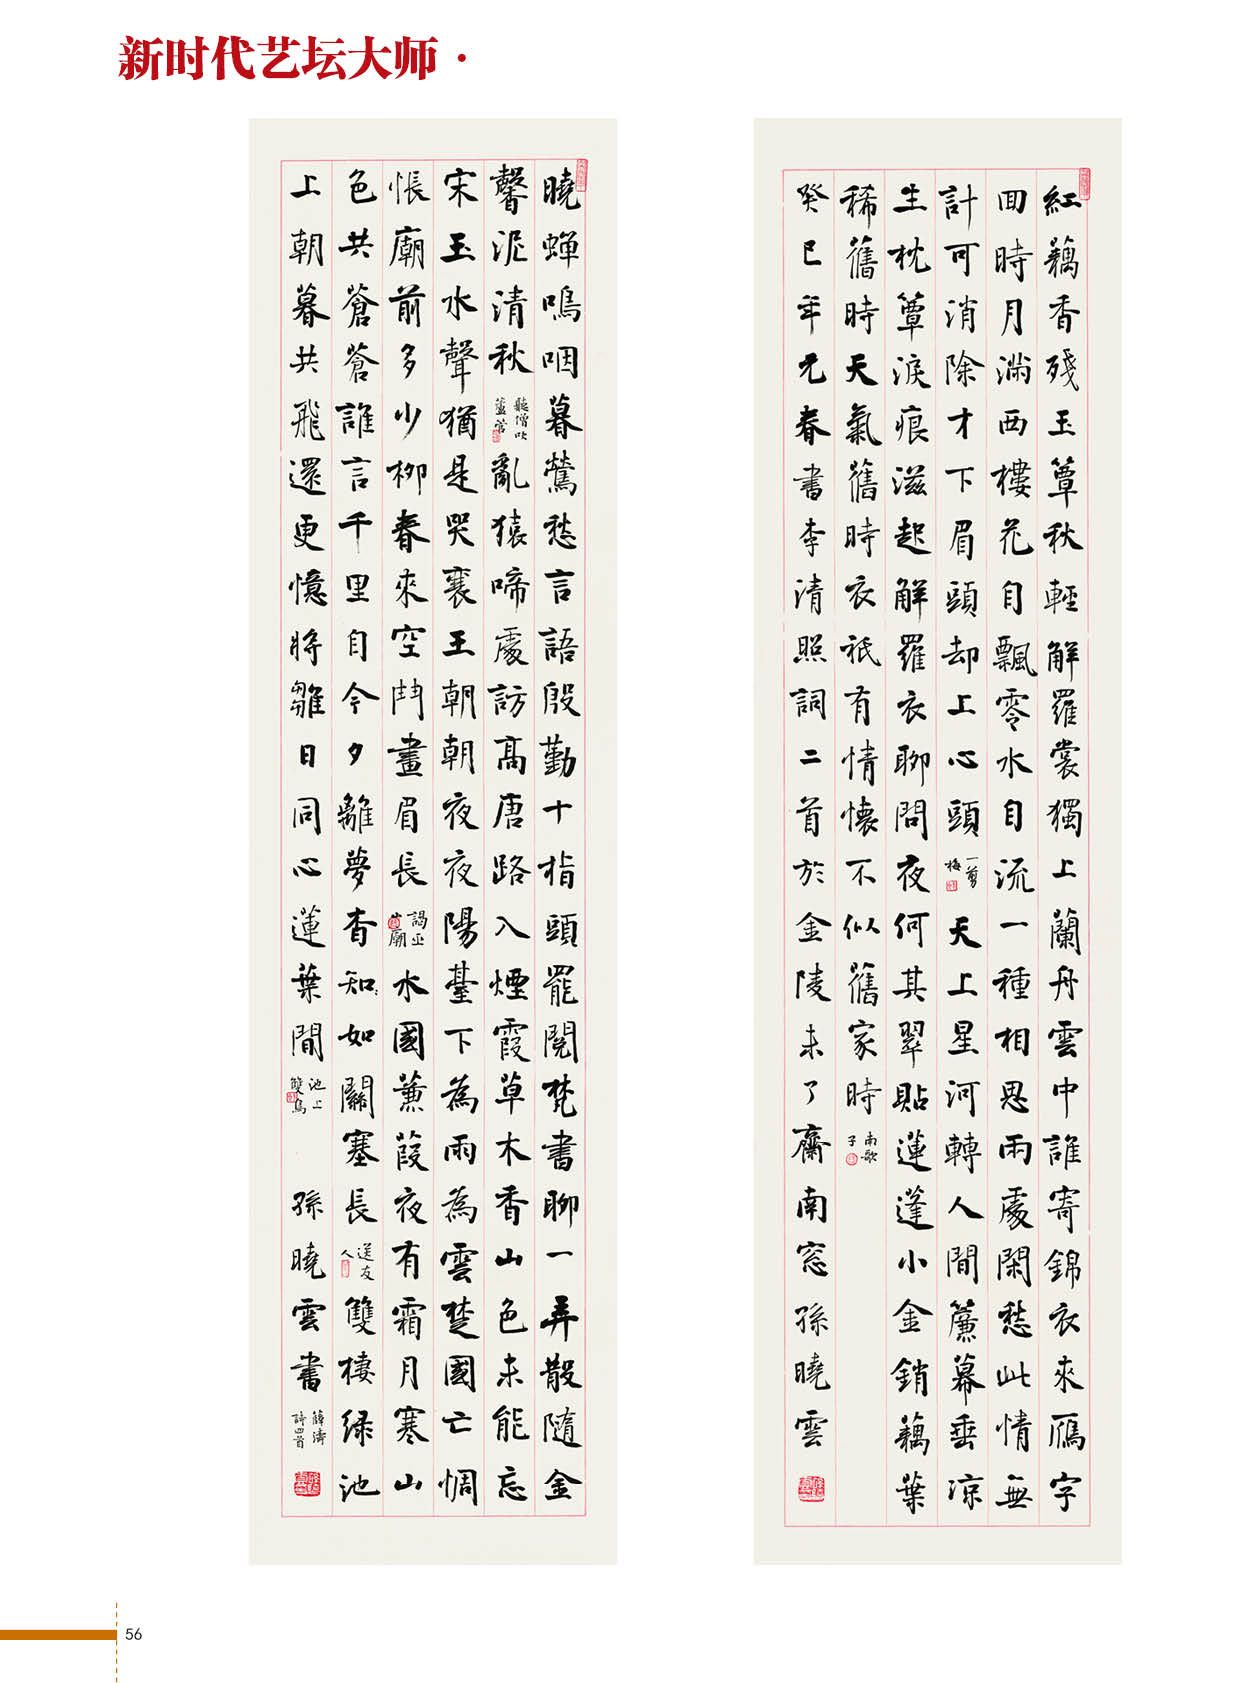 新时代艺坛大师·
紅藕香殘玉簟秋輕解羅裳獨上蘭舟雲中誰寄錦衣來雁字
回時月滿西樓花自飄零水自流一種相思兩處閑愁此情無
計可消除才下眉頭却上心頭一剪梅天上星河轉人間簾幕垂涼
生枕簟淚痕滋起解羅衣聊問夜何其翠貼蓮蓬小金銷藕葉
稀舊時天氣舊時衣衹有情懷不似舊家時南歌子
癸巳年元春書李清照詞二首於金陵未了齋南窓孫曉雲
曉蟬鳴咽暮鶯愁言語殷勤十指頭罷閱梵書聊一弄散隨金
馨泥清秋聽僧吹蘆管亂猿啼處訪高唐路入煙霞草木香山色未能忘
宋玉水聲猶是哭襄王朝朝夜夜陽臺下為雨為雲楚國亡惆
悵廟前多少柳春來空鬥畫眉長謁巫山廟水國蒹葭夜有霜月寒山
色共蒼蒼誰言千里自今夕離夢杳知如關塞長送友人雙棲綠池
上朝暮共飛還更憶將雛日同心蓮葉間池上雙鳥孫曉雲書薛濤詩四首
56